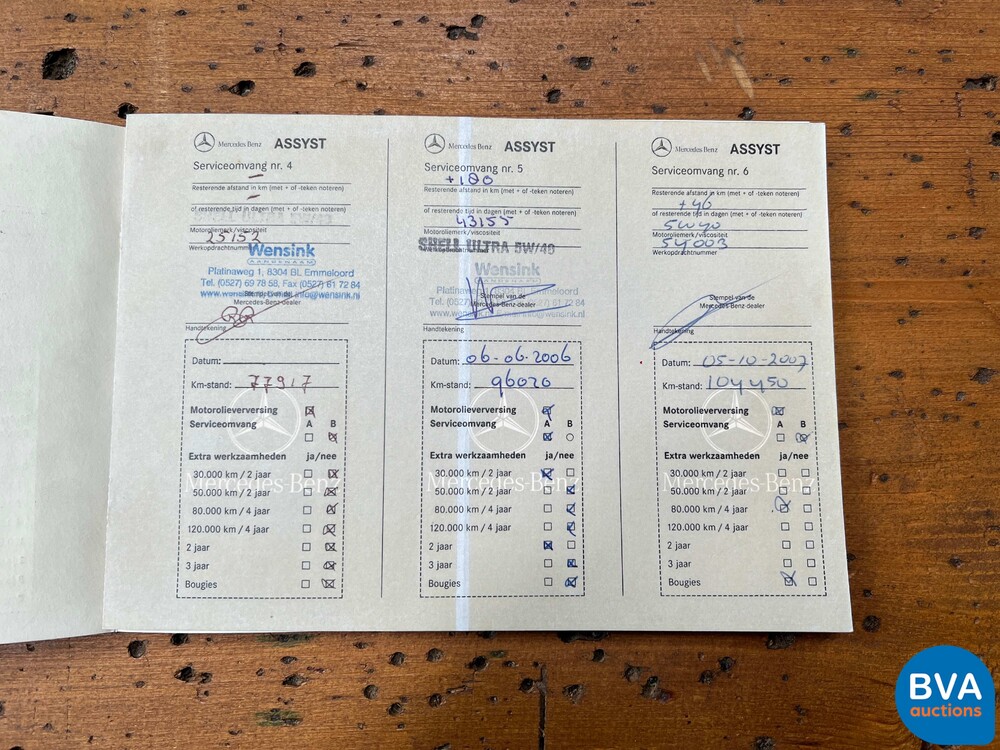 Mercedes Benz ASSYST
Serviceomvang nr. 4
-
Resterende afstand in km (met + of -teken noteren)
-
of resterende tijd in dagen (met + of -teken noteren)
Motoroliemerk/viscositeit
25152
Werkopdrachtnummer
Wensink
Platinaweg 1, 8304 BL Emmeloord
Tel. (0527) 69 78 58, Fax (0527) 61 72 84
Stempel van de
Mercedes-Benz-dealer
Handtekening
Datum:
Km-stand: 77917
Motorolieverversing
Serviceomvang A B
Extra werkzaamheden ja/nee
30.000 km / 2 jaar
50.000 km / 2 jaar
80.000 km / 4 jaar
120.000 km / 4 jaar
2 jaar
3 jaar
Bougies
Mercedes-Benz
Mercedes Benz ASSYST
Serviceomvang nr. 5
+180
Resterende afstand in km (met + of -teken noteren)
of resterende tijd in dagen (met + of -teken noteren)
43155
SHELL ULTRA 5W/40
Wensink
Platinaweg 1, 8304 BL Emmeloord
Stempel van de
Mercedes-Benz-dealer
Handtekening
Datum: 06-06-2006
Km-stand: 96020
Motorolieverversing
Serviceomvang A B
Extra werkzaamheden ja/nee
30.000 km / 2 jaar
50.000 km / 2 jaar
80.000 km / 4 jaar
120.000 km / 4 jaar
2 jaar
3 jaar
Bougies
Mercedes-Benz
Mercedes Benz ASSYST
Serviceomvang nr. 6
Resterende afstand in km (met + of -teken noteren)
+40
of resterende tijd in dagen (met + of -teken noteren)
5W40
Motoroliemerk/viscositeit
54003
Werkopdrachtnummer
Stempel van de
Mercedes-Benz-dealer
Handtekening
Datum: 05-10-2007
Km-stand: 104450
Motorolieverversing
Serviceomvang A B
Extra werkzaamheden ja/nee
30.000 km / 2 jaar
50.000 km / 2 jaar
80.000 km / 4 jaar
120.000 km / 4 jaar
2 jaar
3 jaar
Bougies
Mercedes-Benz
BVA
auctions